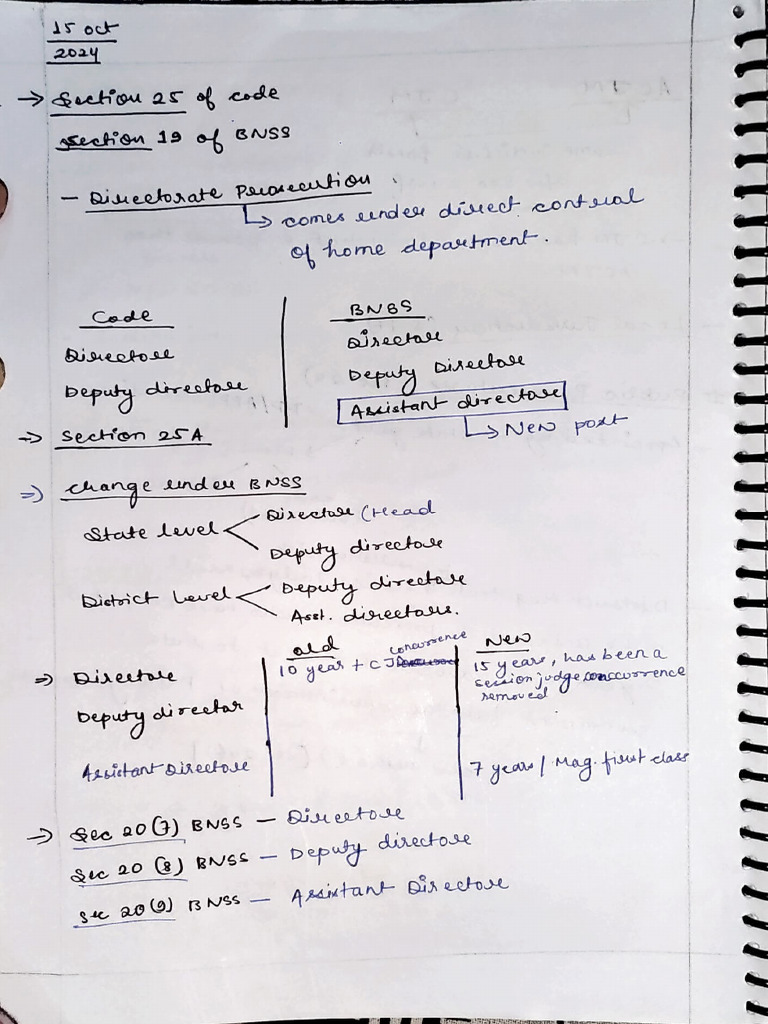 15 oct
2024
→ Section 25 of code
Section 19 of BNSS
- Directorate Prosecution
↳ comes under direct control
of home department.
Code
Director
Deputy director
BNSS
Director
Deputy Director
Assistant director
↳ New post
⇒ Section 25A
⇒ change under BNSS
State level < Director (Head
Deputy director
District level < Deputy director
Asst. directors.
old
New
⇒ Director
10 year + CJ concurrence
15 years, has been a
session judge concurrence
removed
Deputy director
Assistant Director
7 years / Mag. first class
⇒ Sec 20(7) BNSS – Director
Sec 20(8) BNSS – Deputy director
Sec 20(9) BNSS – Assistant Director